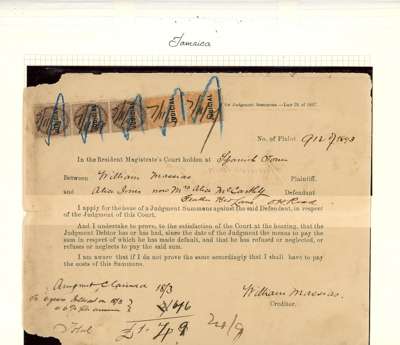 Jamaica
JUDICIAL JUDICIAL JUDICIAL JUDICIAL JUDICIAL
for Judgment Summons — Law 28 of 1887.
No. of Plaint 912 of 1893
In the Resident Magistrate's Court holden at Spanish Town
Between William Massias Plaintiff,
and Alice now Mrs Alice Defendant
Road
I apply for the issue of a Judgment Summons against the said Defendant, in respect
of the Judgment of this Court.
And I undertake to prove, to the satisfaction of the Court at the hearing, that the
Judgment Debtor has or has had, since the date of the Judgment the means to pay the
sum in respect of which he has made default, and that he has refused or neglected, or
refuses or neglects to pay the said sum.
I am aware that if I do not prove the same accordingly that I shall have to pay
the costs of this Summons.
Amount Claimed 18/3
William Massias.
Creditor.
Total £1